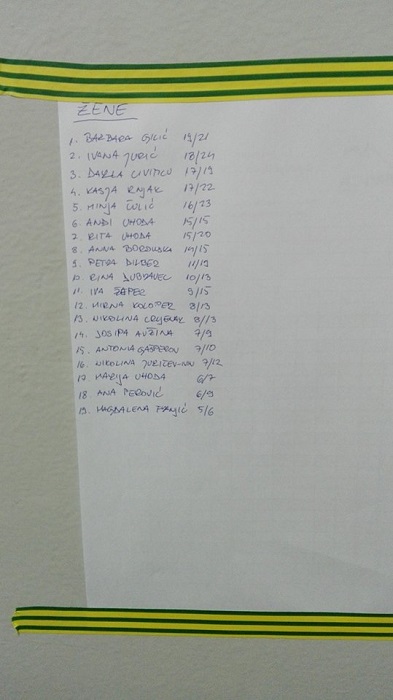 ŽENE
1. BARBARA GILIĆ 19/21
2. IVANA JURIĆ 18/24
3. DARIA CIVITICO 17/19
4. KASJA RNJAK 17/22
5. MINJA ČULIĆ 16/23
6. ANDI UHODA 15/15
7. RITA UHODA 15/20
8. ANNA 14/15
9. PETRA BILBER 11/19
10. RINA DUBRAVEC 10/13
11. IVA ŠAPER 9/15
12. MIRNA KOLOPER 8/13
13. NIKOLINA CRLJENAK 8/13
14. JOSIPA AVŽINA 7/9
15. ANTONIA GAŠPEROV 7/10
16. NIKOLINA JURIČEV-IVIN 7/12
17. MARIJA UHODA 6/7
18. ANA PEROVIĆ 6/9
19. MAGDALENA FRANJIĆ 5/6